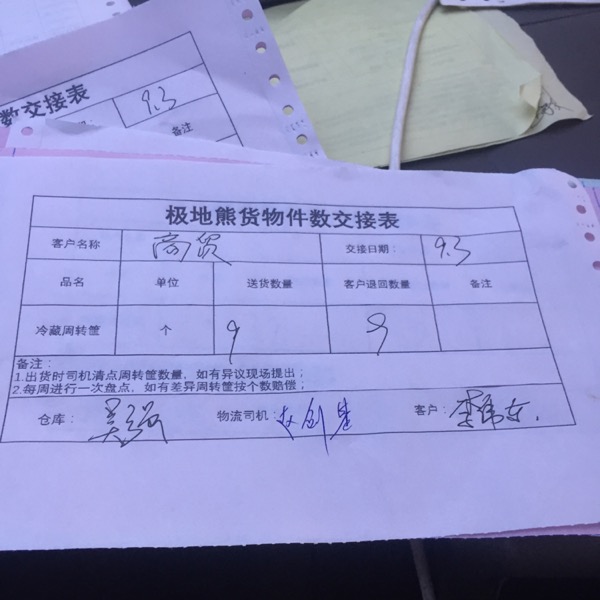 数交接表
9.3
备注
极地熊货物件数交接表
客户名称 商贸 交接日期： 9.3
品名 单位 送货数量 客户退回数量 备注
冷藏周转筐 个 9
备注：
1.出货时司机清点周转筐数量，如有异议现场提出；
2.每周进行一次盘点，如有差异周转筐按个数赔偿；
仓库： 吴强 物流司机： 赵创生 客户： 李伟东